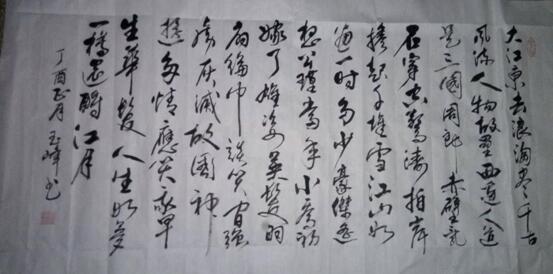 大江東去浪淘尽千古
風流人物故壘西邊人道
是三國周郎赤壁乱
石穿空驚濤拍岸
捲起千堆雪江山如
画一時多少豪傑遥
想公瑾當年小喬初
嫁了雄姿英發羽
扇綸巾談笑间强
虜灰滅故國神
遊多情應笑我早
生華髮人生如夢
一樽還酹江月
丁酉正月玉峰书